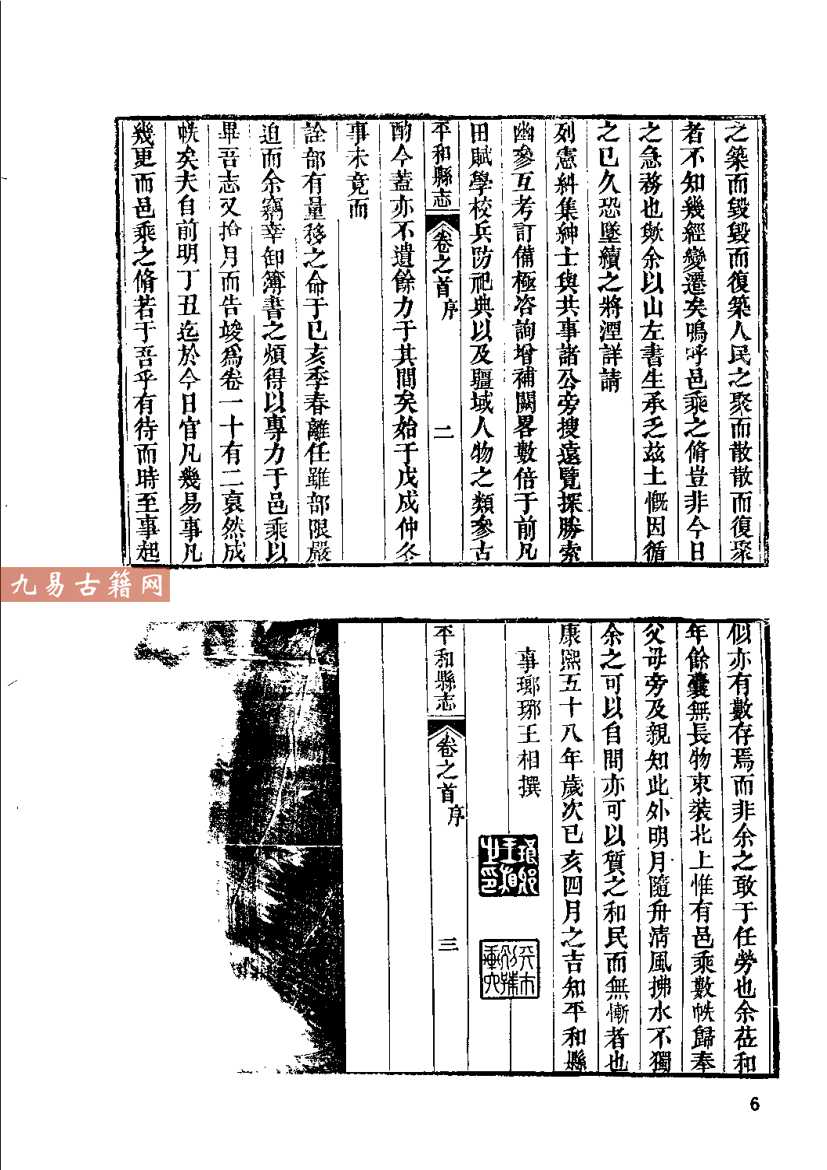 之築而毀毀而復築人民之聚而散散而復聚
者不知幾經變遷矣嗚呼邑乘之脩豈非今日
之急務也歟余以山左書生承乏兹土慨因循
之已久恐墜續之將湮詳請
列憲糾集紳士與共事諸公旁搜遠覽探勝索
幽參互考訂備極咨詢增補闕畧數倍于前凡
田賦學校兵防祀典以及疆域人物之類參古
平和縣志 卷之首 序 二
酌今蓋亦不遺餘力于其間矣始于戊戌仲冬
事未竟而
詮部有量移之命于已亥季春離任雖部限嚴
迫而余竊幸卸簿書之煩得以專力于邑乘以
畢吾志又拾月而告竣爲卷一十有二裒然成
帙矣夫自前明丁丑迄於今日官凡幾易事凡
幾更而邑乘之脩若于吾乎有待而時至事起
九易古籍网
似亦有數存焉而非余之敢于任勞也余莅和
年餘囊無長物束裝北上惟有邑乘數帙歸奉
父母旁及親知此外明月隨舟清風拂水不獨
余之可以自問亦可以質之和民而無慚者也
康熙五十八年歲次已亥四月之吉知平和縣
事瑯琊王相撰
平和縣志 卷之首 序 三
6